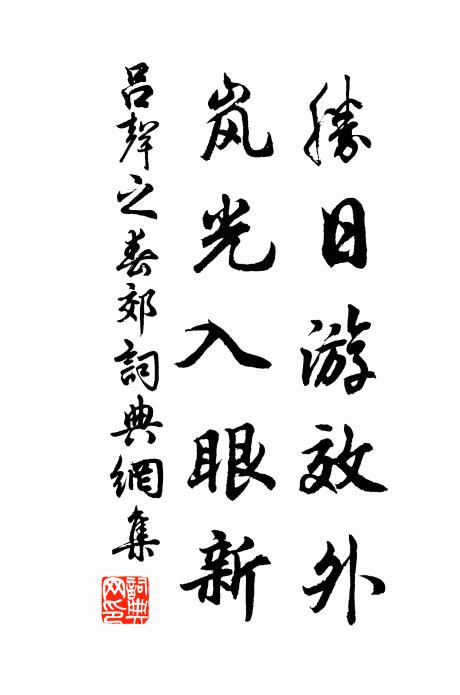 勝日游效外
岚光入眼新
吕聲之春郊詞典網集
詞典网印